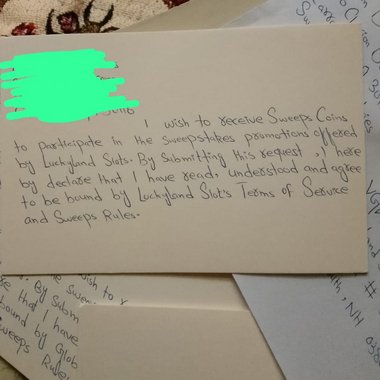 I wish to receive Sweeps Coins
to participate in the sweepstakes promotions offered
by Luckyland Slots. By Submitting this request, I here
by declare that I have read, understood and agree
to be bound by Luckyland Slot's Terms of Service
and Sweeps Rules.
wish to r
By Subm
that I have
bound by Glob
Sweeps Rules
VGW
NH
#